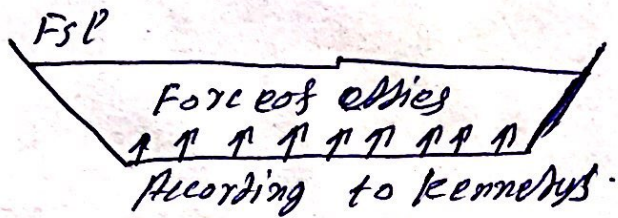 FSL
Force of eddies
According to Kennedys.